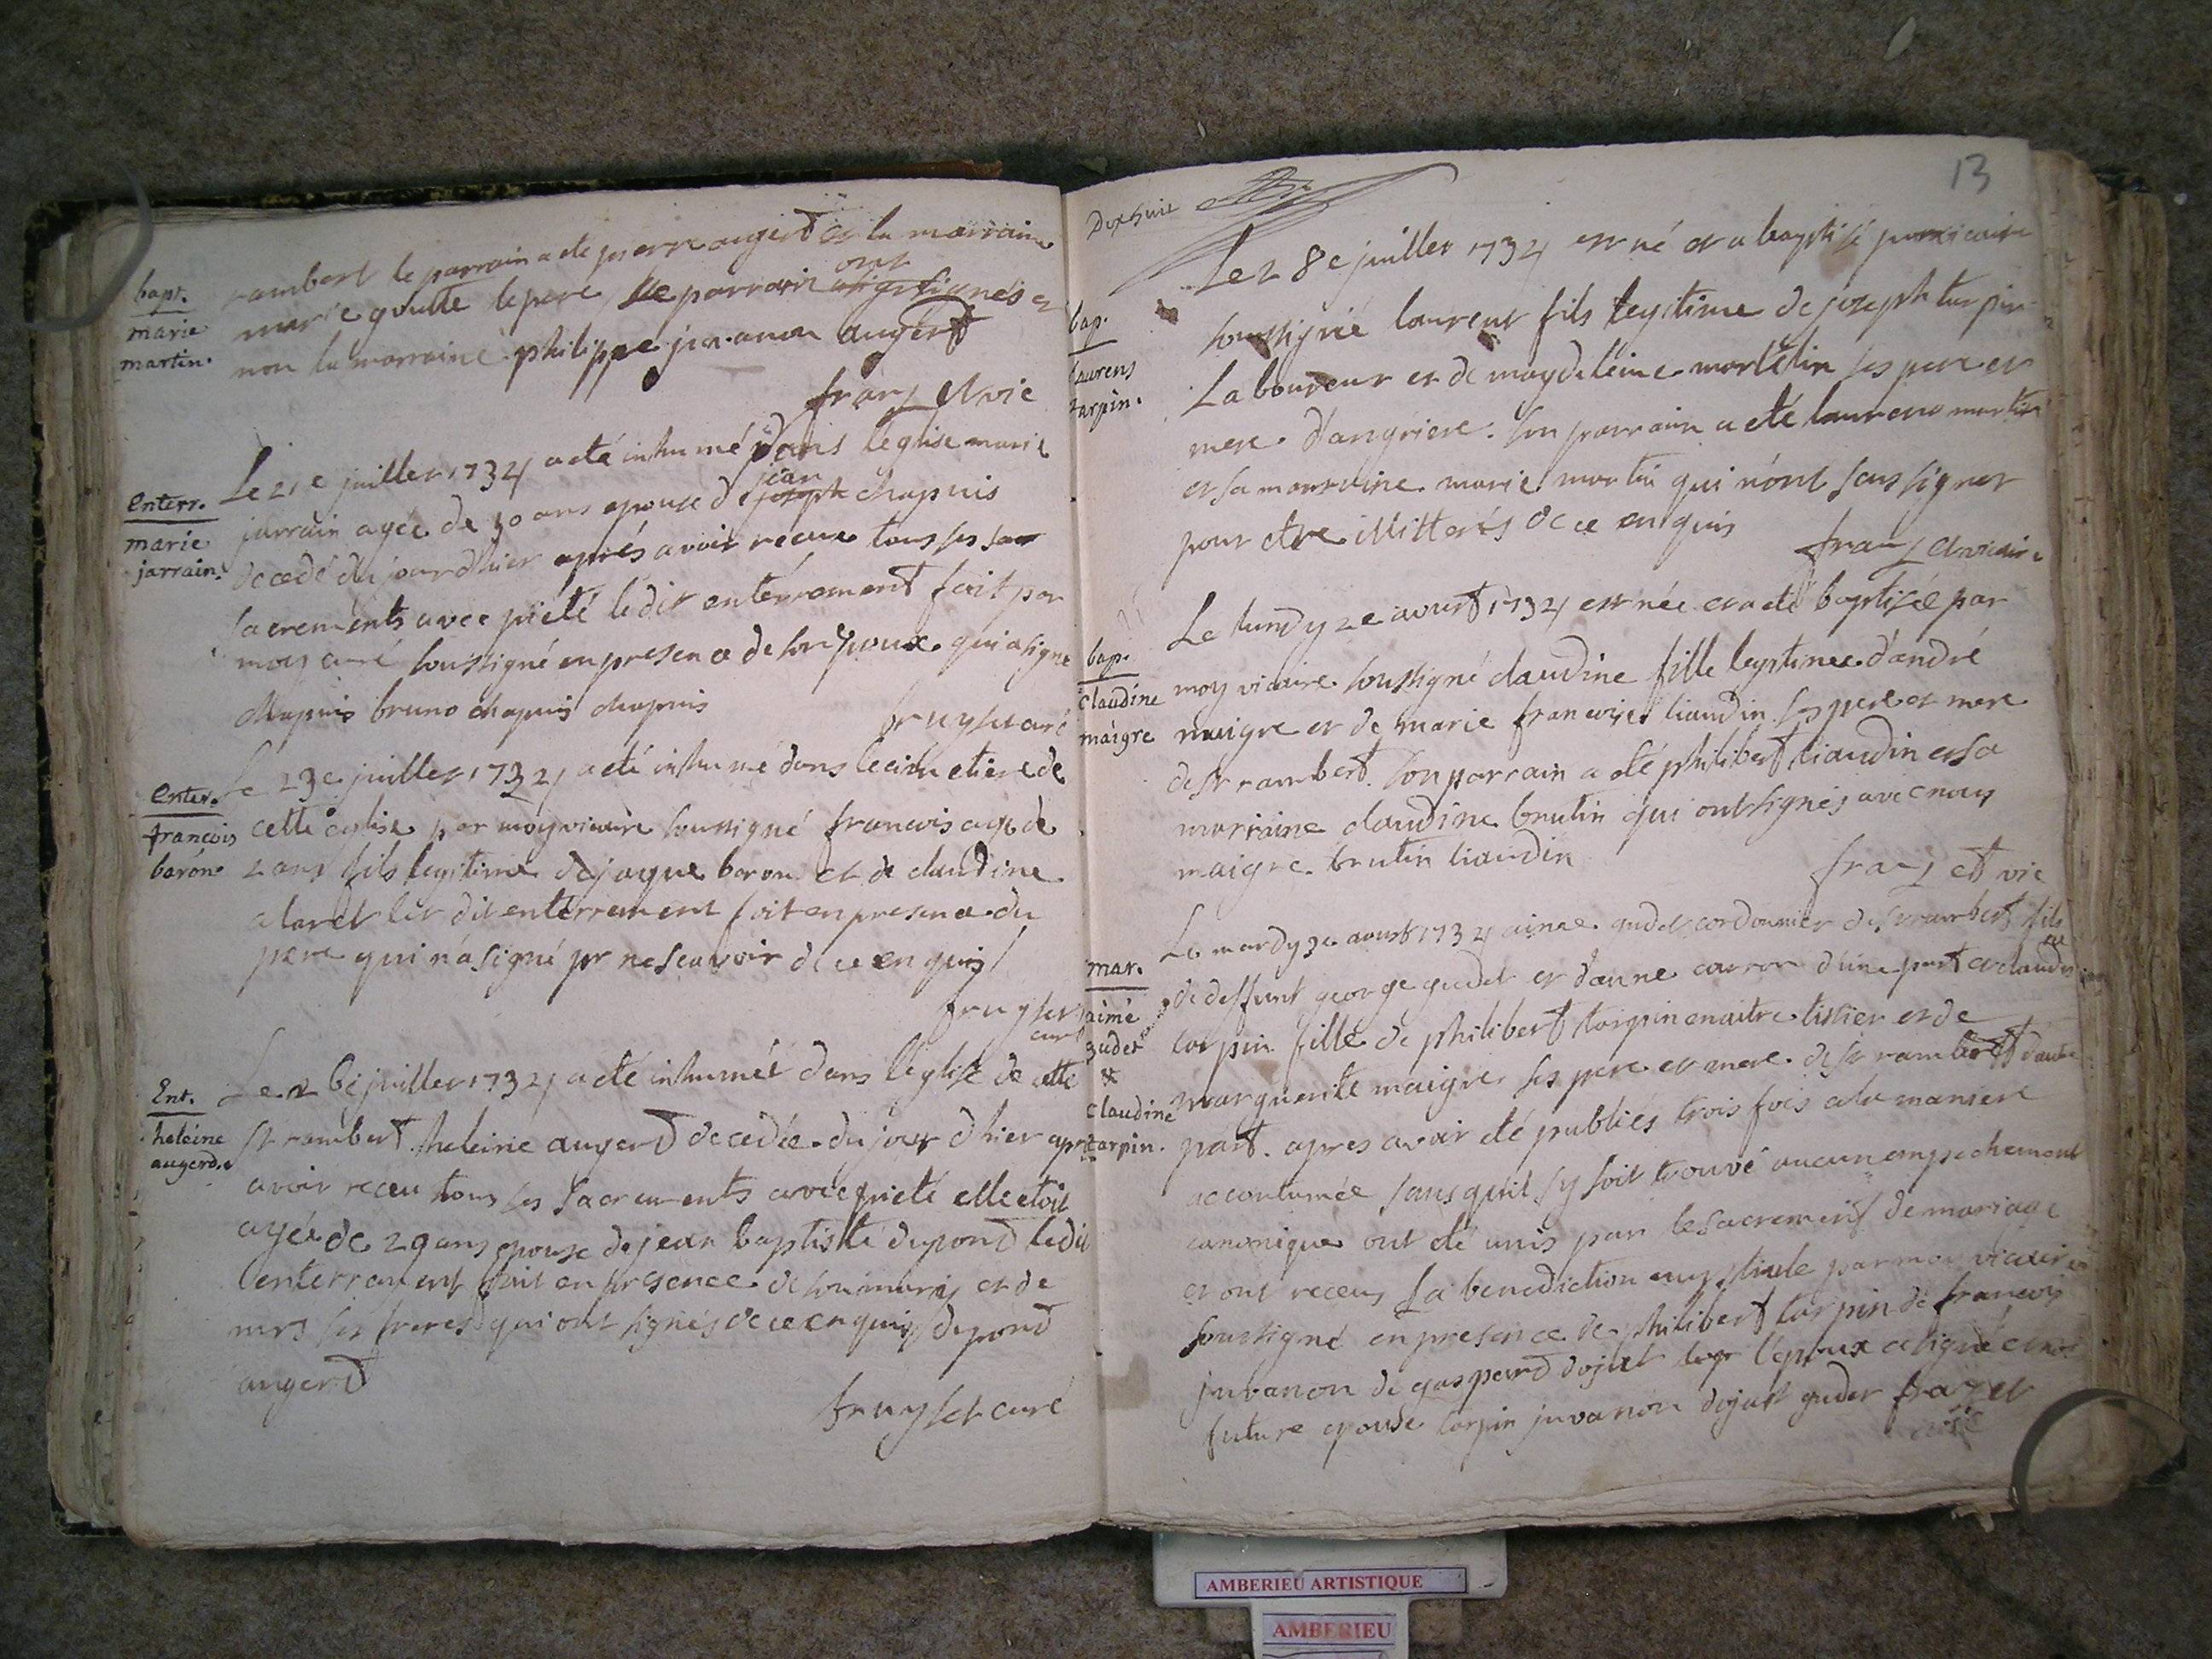 bapt.
marie
martin.
rambert le parrain a ete pierre augerd et la marraine
marie goutte le pere, le parrain ont signés et
non la marraine philippe juvanon augerd
franz et vic
enterr.
marie
jarrain.
Le 21e juillet 1732 a eté inhumé dans leglise marie
jarrain agée de 30 ans epouse de joseph jean chapuis
decedé du jourdhier aprés avoir receue tous ses sac
sacrements avec pieté ledit enterrement fait par
moy curé soussigné en presence de son epoux qui a signé
chapuis bruno chapuis chapuis
fruyset curé
enter.
francois
baron
Le 23e juillet 1732 a eté inhumé dans le cimetiere de
cette eglise par moy vicaire soussigné francois agé de
2 ans fils legitime de jaque baron et de claudine
ledit enterrement fait en presence du
pere qui n'a signé pr ne scavoir de ce enquis
fruyset
curé
Ent.
heleine
augerd.
Le 26e juillet 1732 a eté inhumée dans l'eglise de cette
st rambert heleine augerd decedée du jour dhier apré
avoir receu tous ses sacrements avec pieté elle etoit
agée de 29 ans epouse de jean baptiste dupond ledit
enterrement fait en presence de son mary et de
mrs ses freres qui ont signés de ce enquis dupond
augerd
fruyset curé
Dixhuit
13
bap.
laurens
tarpin.
Le 28e juillet 1732 est né et a baptisé par vicaire
soussigné laurent fils legitime de joseph tarpin
Laboureur et de magdeleine martelin ses pere et
mere d'angriere. son parrain a eté laurens martin
et sa marraine marie martin qui n'ont sous signer
pour etre illitterés de ce enquis
franz et vicaire
bap.
claudine
maigre
Le lundy 2e aoust 1732 est née et a eté baptisée par
moy vicaire soussigné claudine fille legitimee d'andré
maigre et de marie francoise liaudin ses pere et mere
de st rambert. son parrain a eté philibert liaudin et sa
marraine claudine brutin qui ont signés avec nous
maigre brutin liaudin
franz et vic
mar.
aimé
gudet
&
claudine
tarpin.
Le mardy 3e aoust 1732 aimé gudet cordonnier de st rambert fils
de deffunt george gudet et danne carron d'une part et claudine
tarpin fille de philibert tarpin maitre tissier et de
marguerite maigre ses pere et mere de st rambert d'autre
part. apres avoir eté publiés trois fois a la maniere
accoutumée sans quil sy soit trouvé aucun empechement
canonique ont eté unis par le sacrement de mariage
et ont receus la benediction nuptiale par moy vicaire
soussigné en presence de philibert tarpin de francois
juvanon de gaspard dojat l'epoux a signé et non
future epouse tarpin juvanon dojat gudet franz et
vic
AMBERIEU ARTISTIQUE
AMBERIEU